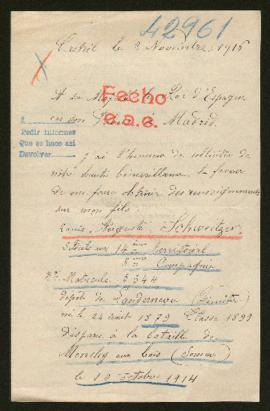 42961
le 2 Novembre, 1915
A Sa Majesté le Roi d'Espagne
en son Madrid.
Fecho
e.a.e.
Pedir informes
Que se hace así
Devolver
j'ai l'honneur de solliciter de
votre haute bienveillance la faveur
de me faire obtenir des renseignements
sur mon fils.
Louis, Auguste Schweitzer
Soldat au 14 ème Territorial
8 ème Compagnie
N° Matricule 5344
dépôt de Landerneau (Finistère)
né le 24 août 1879 Classe 1899
Disparu à la bataille de
Monchy aux bois (Somme)
le 10 octobre 1914